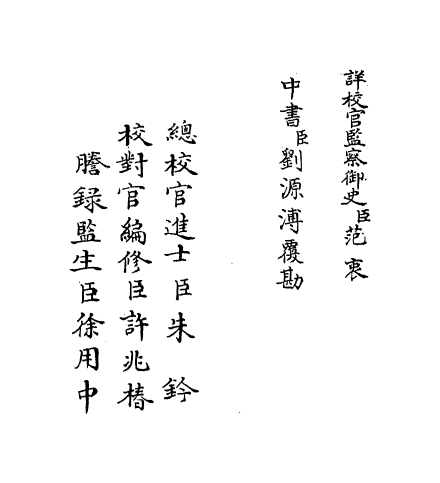 詳校官監察御史臣范衷
中書臣劉源溥覆勘
總校官進士臣朱鈐
校對官編修臣許兆椿
謄錄監生臣徐用中